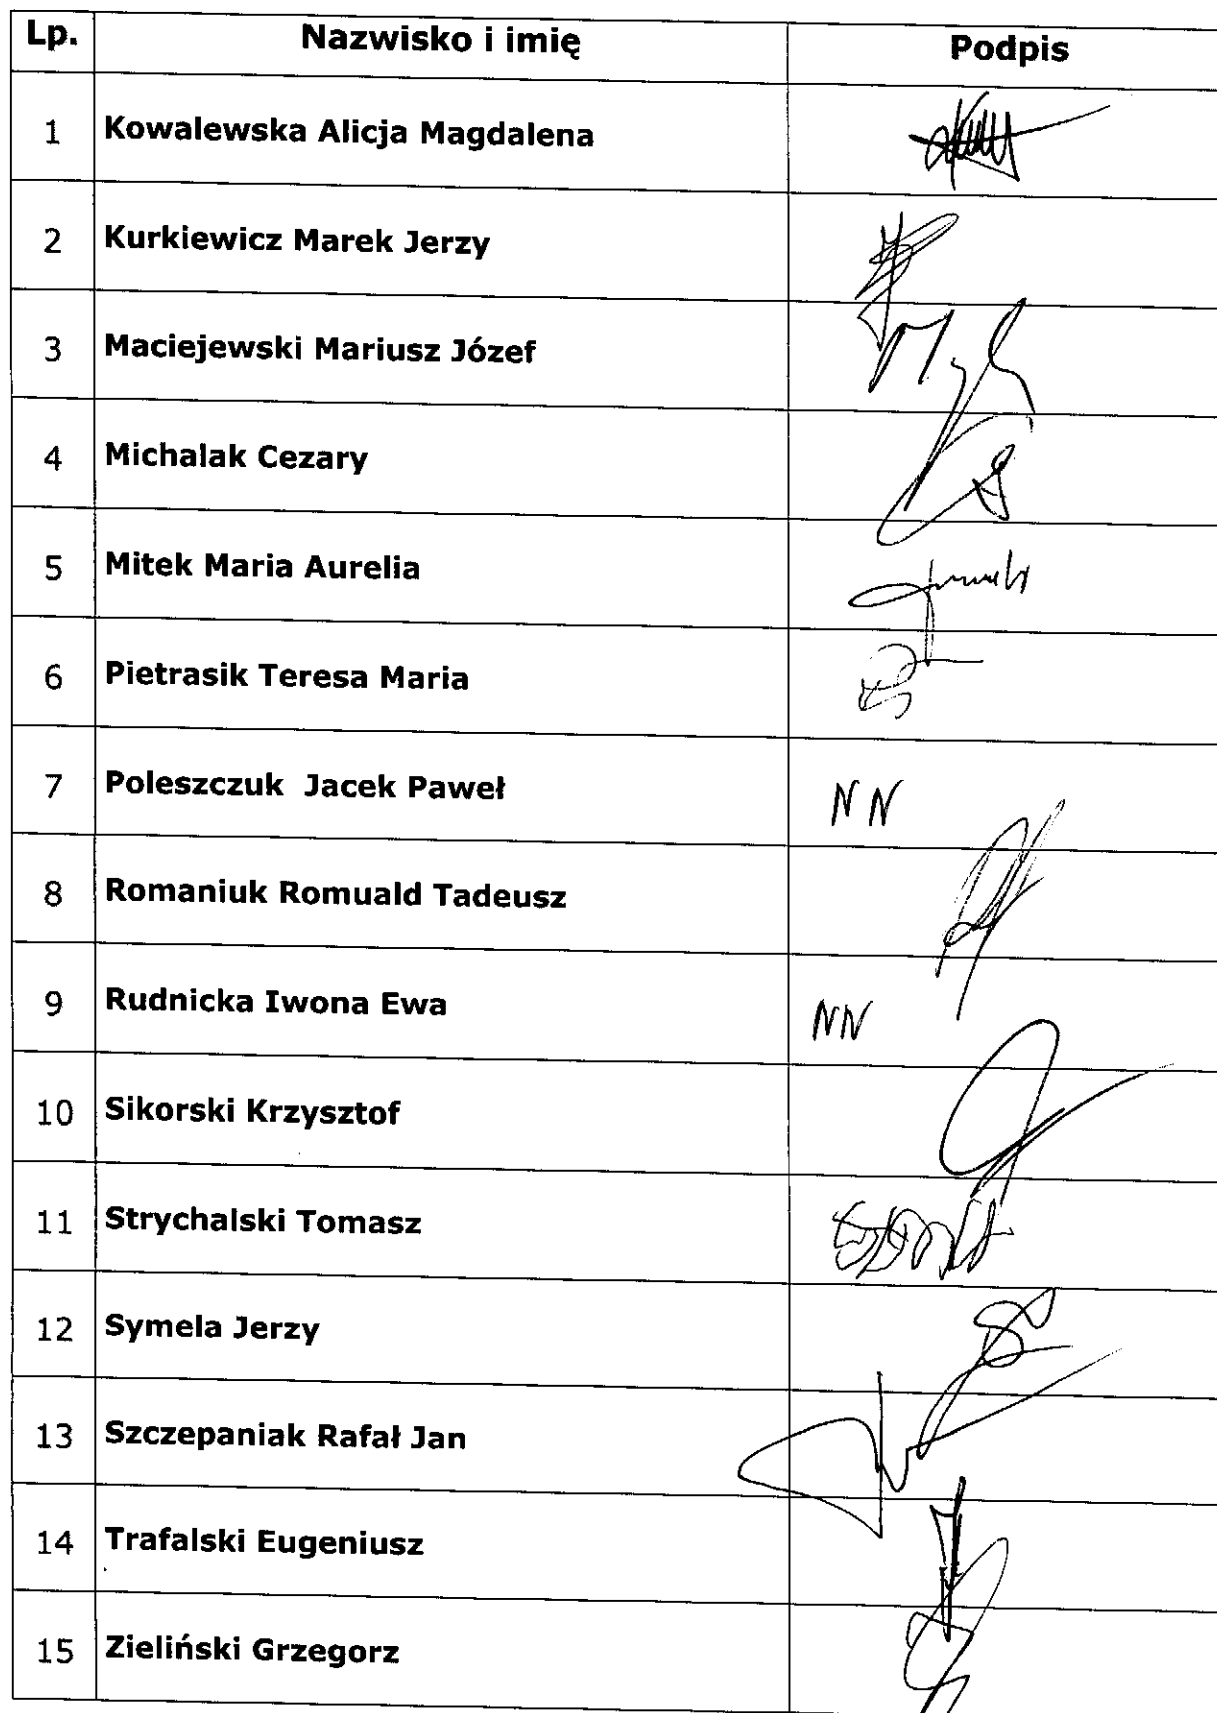 Lp. Nazwisko i imię Podpis
1 Kowalewska Alicja Magdalena
2 Kurkiewicz Marek Jerzy
3 Maciejewski Mariusz Józef
4 Michalak Cezary
5 Mitek Maria Aurelia
6 Pietrasik Teresa Maria
7 Poleszczuk Jacek Paweł NN
8 Romaniuk Romuald Tadeusz
9 Rudnicka Iwona Ewa NN
10 Sikorski Krzysztof
11 Strychalski Tomasz
12 Symela Jerzy
13 Szczepaniak Rafał Jan
14 Trafalski Eugeniusz
15 Zieliński Grzegorz